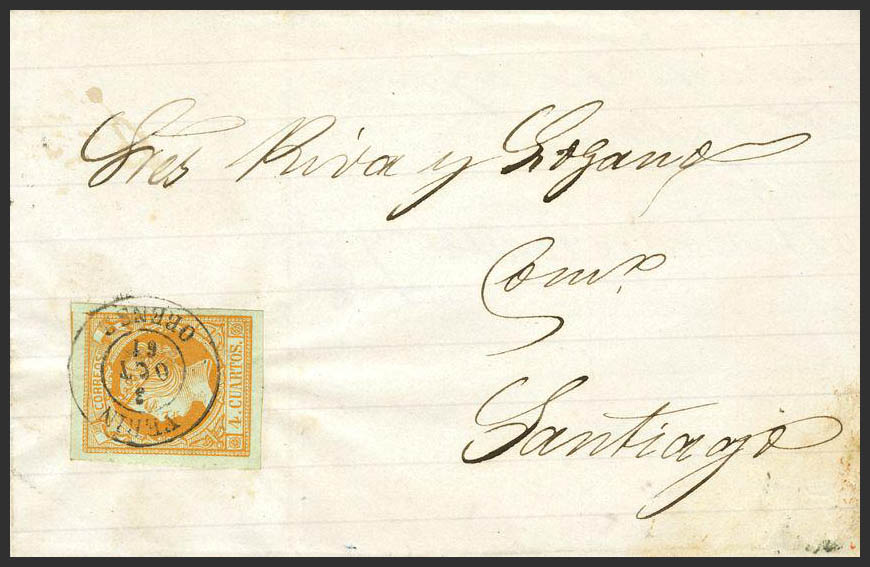 Sres Riva y Lozano
Comº
Santiago
CORREOS
4. CUARTOS.
VERIN
3
OCT
61
ORENSE